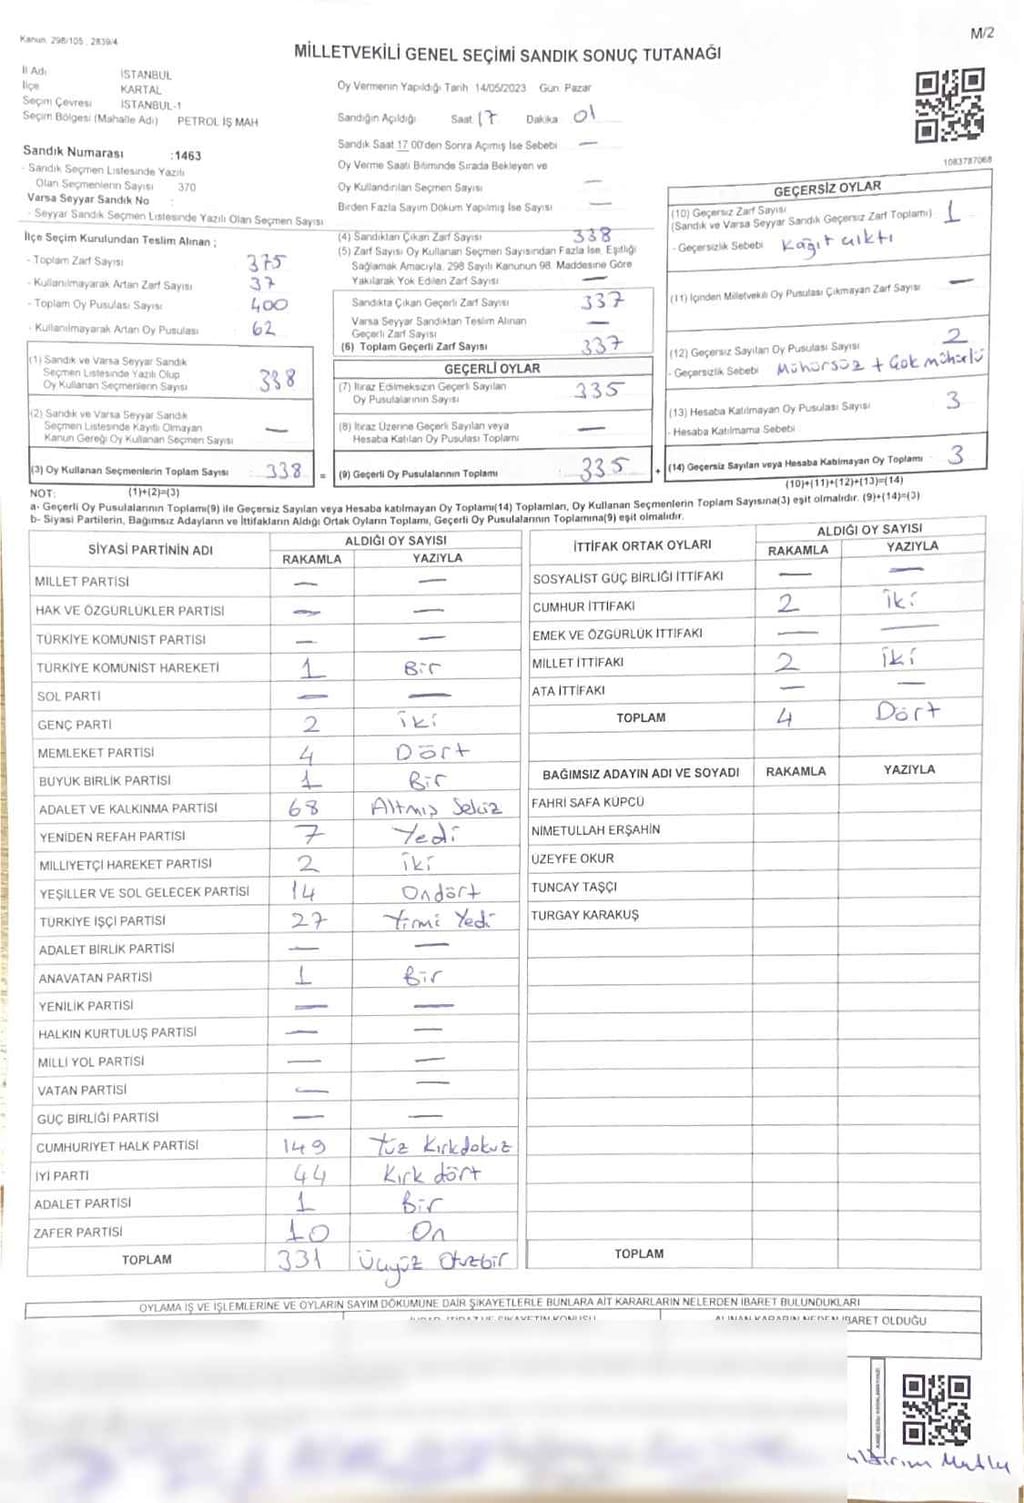 Kanun: 298/105, 2839/4
M/2
MİLLETVEKİLİ GENEL SEÇİMİ SANDIK SONUÇ TUTANAĞI
İl Adı İSTANBUL
İlçe KARTAL
Seçim Çevresi İSTANBUL-1
Seçim Bölgesi (Mahalle Adı) PETROL İŞ MAH
Sandık Numarası :1463
- Sandık Seçmen Listesinde Yazılı
Olan Seçmenlerin Sayısı 370
Varsa Seyyar Sandık No :
- Seyyar Sandık Seçmen Listesinde Yazılı Olan Seçmen Sayısı
Oy Vermenin Yapıldığı Tarih 14/05/2023 Gün: Pazar
Sandığın Açıldığı Saat 17 Dakika 01
Sandık Saat 17 00'den Sonra Açımış İse Sebebi —
Oy Verme Saati Bitiminde Sırada Bekleyen ve
Oy Kullandırılan Seçmen Sayısı —
Birden Fazla Sayım Döküm Yapılmış İse Sayısı —
1083787068
İlçe Seçim Kurulundan Teslim Alınan ;
- Toplam Zarf Sayısı 375
- Kullanılmayarak Artan Zarf Sayısı 37
- Toplam Oy Pusulası Sayısı 400
- Kullanılmayarak Artan Oy Pusulası 62
(1) Sandık ve Varsa Seyyar Sandık
Seçmen Listesinde Yazılı Olup
Oy Kullanan Seçmenlerin Sayısı 338
(2) Sandık ve Varsa Seyyar Sandık
Seçmen Listesinde Kayıtlı Olmayan
Kanun Gereği Oy Kullanan Seçmen Sayısı —
(3) Oy Kullanan Seçmenlerin Toplam Sayısı 338 =
(1)+(2)=(3)
(4) Sandıktan Çıkan Zarf Sayısı 338
(5) Zarf Sayısı Oy Kullanan Seçmen Sayısından Fazla İse, Eşitliği
Sağlamak Amacıyla, 298 Sayılı Kanunun 98. Maddesine Göre
Yakılarak Yok Edilen Zarf Sayısı —
Sandıkta Çıkan Geçerli Zarf Sayısı 337
Varsa Seyyar Sandıktan Teslim Alınan
Geçerli Zarf Sayısı —
(6) Toplam Geçerli Zarf Sayısı 337
GEÇERLİ OYLAR
(7) İtiraz Edilmeksizin Geçerli Sayılan
Oy Pusulalarının Sayısı 335
(8) İtiraz Üzerine Geçerli Sayılan veya
Hesaba Katılan Oy Pusulası Toplamı —
(9) Geçerli Oy Pusulalarının Toplamı 335 +
GEÇERSİZ OYLAR
(10) Geçersiz Zarf Sayısı
(Sandık ve Varsa Seyyar Sandık Geçersiz Zarf Toplamı) 1
- Geçersizlik Sebebi Kağıt çıktı
(11) İçinden Milletvekili Oy Pusulası Çıkmayan Zarf Sayısı —
(12) Geçersiz Sayılan Oy Pusulası Sayısı 2
- Geçersizlik Sebebi Mühürsüz + Çok mühürlü
(13) Hesaba Katılmayan Oy Pusulası Sayısı 3
- Hesaba Katılmama Sebebi
(14) Geçersiz Sayılan veya Hesaba Katılmayan Oy Toplamı 3
(10)+(11)+(12)+(13)=(14)
NOT:
a- Geçerli Oy Pusulalarının Toplamı(9) ile Geçersiz Sayılan veya Hesaba katılmayan Oy Toplamı(14) Toplamları, Oy Kullanan Seçmenlerin Toplam Sayısına(3) eşit olmalıdır. (9)+(14)=(3)
b- Siyasi Partilerin, Bağımsız Adayların ve İttifakların Aldığı Ortak Oyların Toplamı, Geçerli Oy Pusulalarının Toplamına(9) eşit olmalıdır.
SİYASİ PARTİNİN ADI ALDIĞI OY SAYISI
RAKAMLA YAZIYLA
MİLLET PARTİSİ — —
HAK VE ÖZGÜRLÜKLER PARTİSİ — —
TÜRKİYE KOMÜNİST PARTİSİ — —
TÜRKİYE KOMÜNİST HAREKETİ 1 Bir
SOL PARTİ — —
GENÇ PARTİ 2 iki
MEMLEKET PARTİSİ 4 Dört
BÜYÜK BİRLİK PARTİSİ 1 Bir
ADALET VE KALKINMA PARTİSİ 68 Altmış Sekiz
YENİDEN REFAH PARTİSİ 7 Yedi
MİLLİYETÇİ HAREKET PARTİSİ 2 iki
YEŞİLLER VE SOL GELECEK PARTİSİ 14 Ondört
TÜRKİYE İŞÇİ PARTİSİ 27 Yirmi Yedi
ADALET BİRLİK PARTİSİ — —
ANAVATAN PARTİSİ 1 Bir
YENİLİK PARTİSİ — —
HALKIN KURTULUŞ PARTİSİ — —
MİLLİ YOL PARTİSİ — —
VATAN PARTİSİ — —
GÜÇ BİRLİĞİ PARTİSİ — —
CUMHURİYET HALK PARTİSİ 149 Yüz Kırkdokuz
İYİ PARTİ 44 Kırk dört
ADALET PARTİSİ 1 Bir
ZAFER PARTİSİ 10 On
TOPLAM 331 Üçyüz Otuzbir
İTTİFAK ORTAK OYLARI ALDIĞI OY SAYISI
RAKAMLA YAZIYLA
SOSYALİST GÜÇ BİRLİĞİ İTTİFAKI — —
CUMHUR İTTİFAKI 2 iki
EMEK VE ÖZGÜRLÜK İTTİFAKI — —
MİLLET İTTİFAKI 2 iki
ATA İTTİFAKI — —
TOPLAM 4 Dört
BAĞIMSIZ ADAYIN ADI VE SOYADI RAKAMLA YAZIYLA
FAHRİ SAFA KÜPCÜ
NİMETULLAH ERŞAHİN
ÜZEYFE OKUR
TUNCAY TAŞÇI
TURGAY KARAKUŞ
TOPLAM
OYLAMA İŞ VE İŞLEMLERİNE VE OYLARIN SAYIM DÖKÜMÜNE DAİR ŞİKAYETLERLE BUNLARA AİT KARARLARIN NELERDEN İBARET BULUNDUKLARI
ALINAN KARARIN NEDEN İBARET OLDUĞU